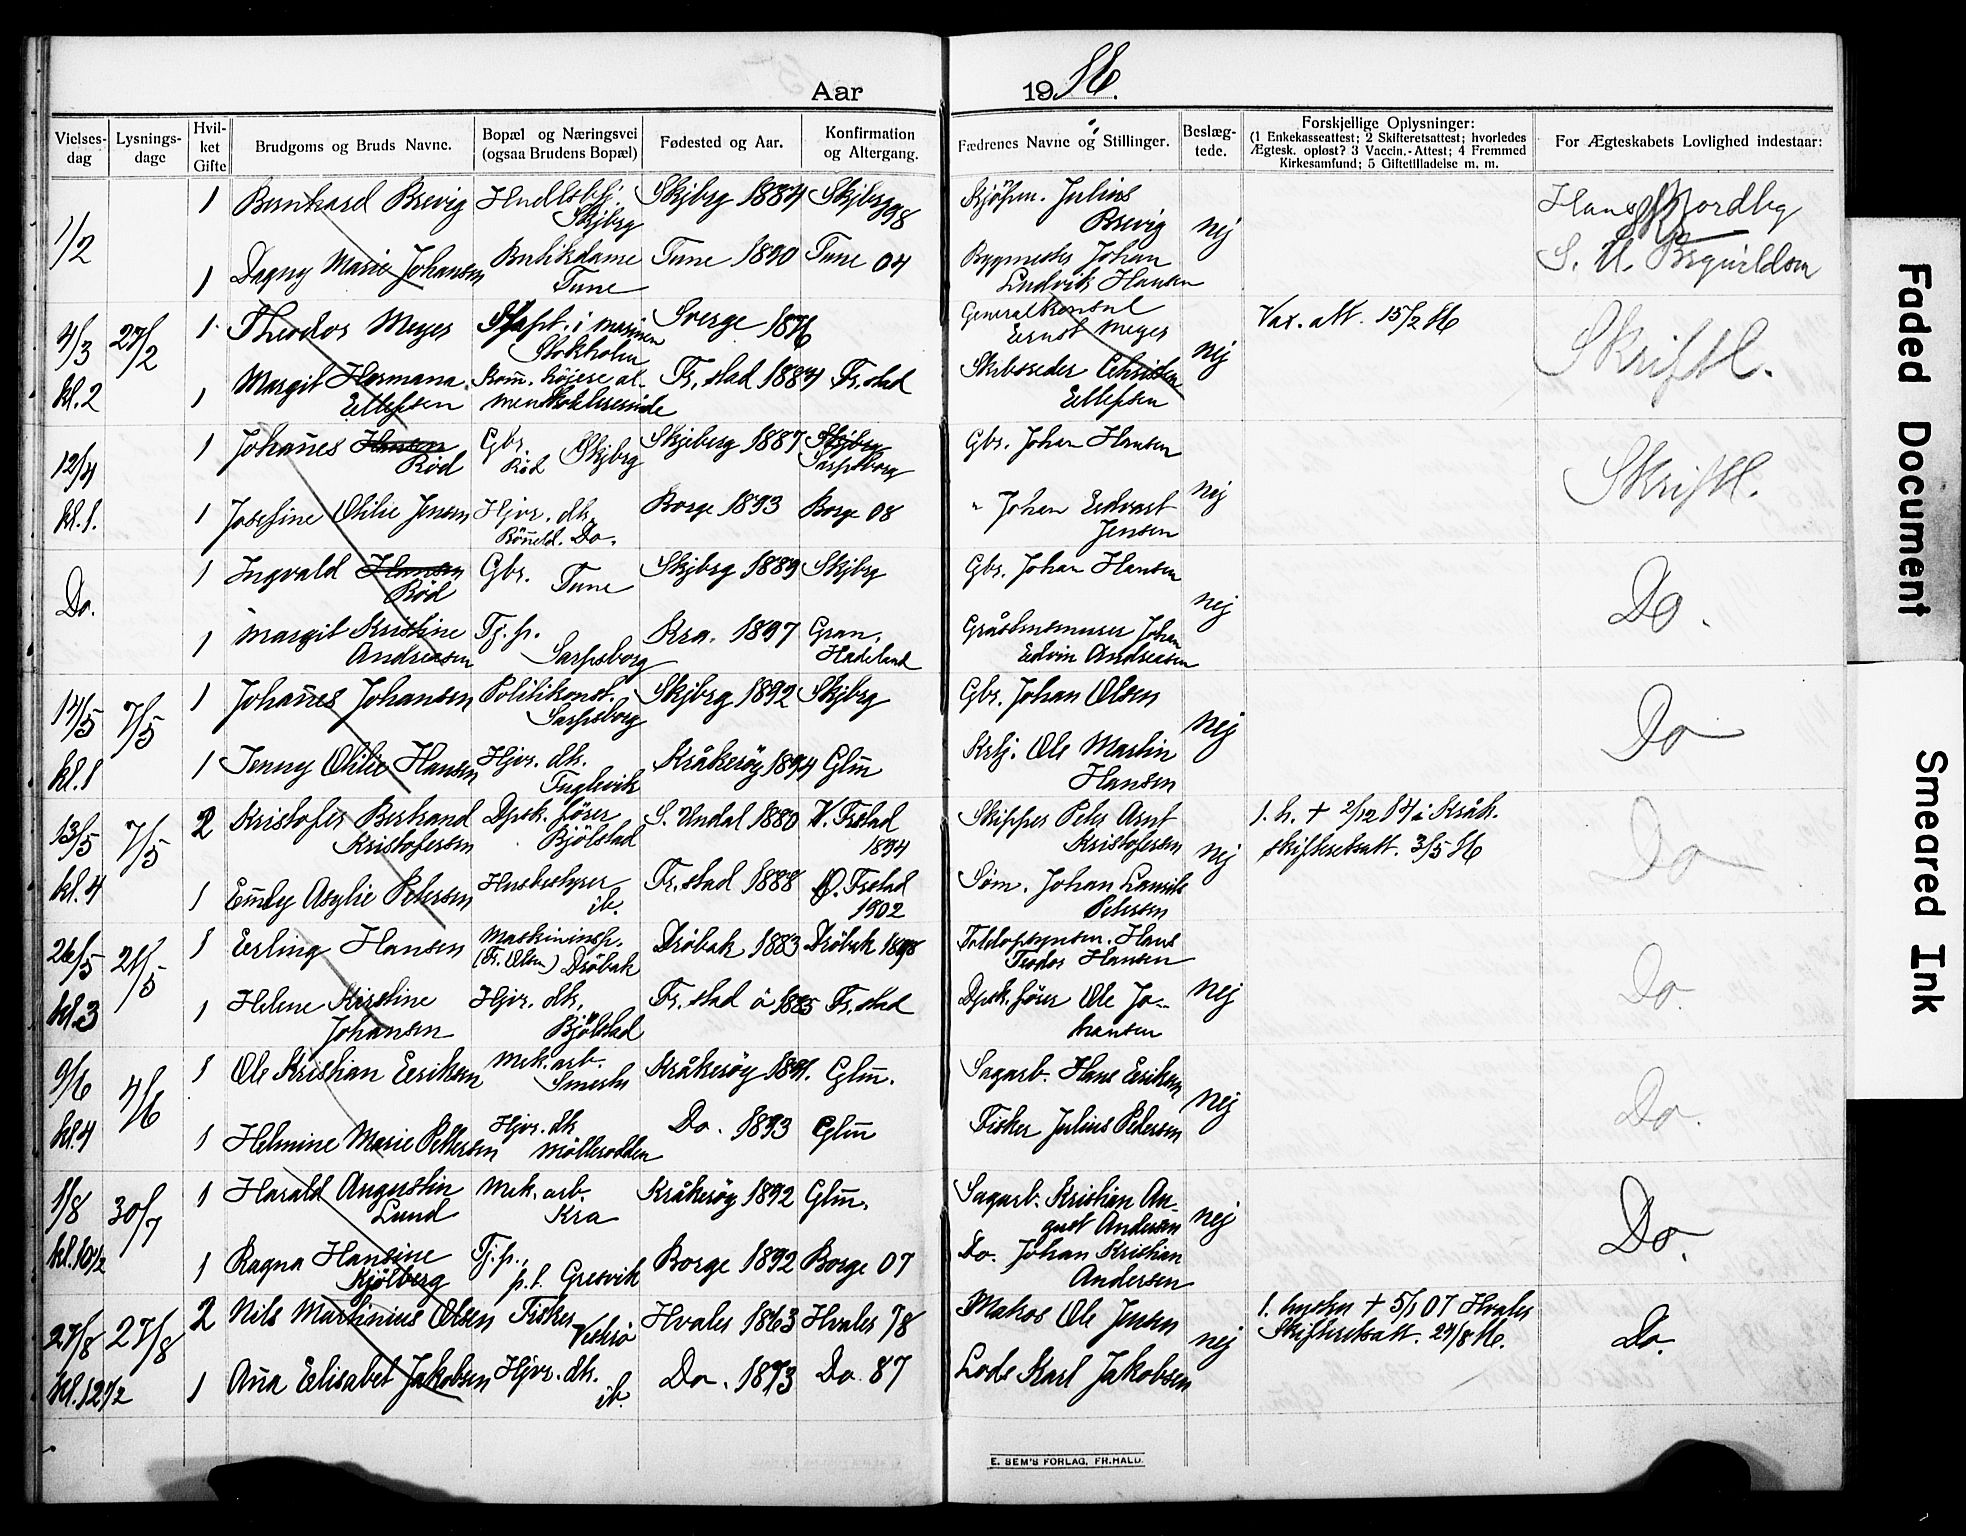 Aar 1916.
Vielses-dag
Lysnings-dage
Hvil-ket Gifte
Brudgoms og Bruds Navne.
Bopæl og Næringsvei (ogsaa Brudens Bopæl)
Fødested og Aar.
Konfirmation og Altergang.
Fædrenes Navne og Stillinger.
Beslæg-tede.
Forskjellige Oplysninger:
(1 Enkekasseattest; 2 Skifteretsattest; hvorledes
Ægtesk. opløst? 3 Vaccin.-Attest; 4 Fremmed
Kirkesamfund; 5 Giftetilladelse m. m.
For Ægteskabets Lovlighed indestaar:
1/2
1 Bernhard Brevig
Skjbrg
Skjbrg 1884
Skjbrg 98
Julius
Brevig
nej
Hans Nordby
1 Dagny Marie Johansen
Butikdame
Tune
Tune 1890
Tune 04
Bygmester Johan
Ludvik Hansen
S. U.
4/3
kl. 2
27/2
1 Theodor Meyer
Kapt. i marinen
Stokholm
Sverge 1876
Generalkonsul
Ernst Meyer
nej
Vax. att. 15/2 16
Skriftl.
1 Margit Hermana
Ellefsen
Fr.stad 1884
Fr.stad
Skibsreder Christen
Ellefsen
12/4
kl. 1.
1 Johañes Hansen
Rød
Gbr.
Rød Skjbrg
Skjeberg 1887
Skjbrg
Sarpsborg
Gbr. Johan Hansen
nej
Skriftl.
1 Josefine Otilie Jensen
Hjvr. dtr.
Do.
Borge 1893
Borge 08
" Johan Edvart
Jensen
Do.
1 Ingvald Hansen
Rød
Gbr. Tune
Skjbrg 1889
Skjbrg
Gbr. Johan Hansen
nej
Do.
1 Margit Kristine
Andreasen
Tj. p.
Sarpsborg
Kra. 1897
Gran,
Hadeland
Gråstensmurer Johan
Edvin Andreasen
14/5
kl. 1
7/5
1 Johañes Johansen
Politikonst.
Sarpsborg
Skjbrg 1892
Skjbrg
Gbr. Johan Olsen
nej
Do
1 Jenny Otilie Hansen
Hjvr. dtr.
Fuglevik
Kråkerøy 1894
Glm̃
Ole Martin
Hansen
13/5
kl. 4
7/5
2 Kristofer Bertrand
Kristofersen
Dpsk. fører
Bjölstad
S. Undal 1880
V. Frstad
1894
Skipper Peter Arnt
Kristofersen
nej
1. h. + 2/12 14 i Kråk.
skifteretsatt. 3/5 16
Do
1 Em̃ly Asylie Petersen
Husbestyrer
ib.
Fr.stad 1888
Ø. Frstad
1902
Søm. Johan Laurits
Petersen
26/5
kl. 3
21/5
1 Erling Hansen
Maskininsp.
(Fr. Olsen) Drøbak
Drøbak 1883
Drøbak 1898
Toldopsynsm. Hans
Teodor Hansen
nej
Do.
1 Helene Kirstine
Johansen
Hjvr. dtr.
Bjölstad
Fr.stad ö 1885
Fr.stad
Dpsk. fører Ole Jo-
hansen
9/6
kl. 4
4/6
1 Ole Kristian Eriksen
Mek. arb.
Kråkerøy 1891.
Glm̃.
Sagarb. Hans Eriksen
nej
Do.
1 Helmine Marie Pettersen
Hjvr. dtr
Möllerodden
Do. 1893
Glm̃
Fisker Julius Petersen
1/8
kl. 10 1/2
30/7
1 Harald Augustin
Lund
Mek. arb.
Kra
Kråkerøy 1892
Glm̃.
Sagarb. Kristian Au-
gust Andersen
nej
Do.
1 Ragna Hansine
Kjölberg
Tj. p.,
p.t. Gresvik
Borge 1892
Borge 07
Do. Johan Kristian
Andersen
27/8
kl. 12 1/2
27/8
2 Nils Martinius Olsen
Fisker
Vesterö
Hvaler 1863
Hvaler 78
Matros Ole Jensen
nej
1. hustru + 5/1 07 Hvaler
Skifteretsatt. 24/8 16.
Do.
1 Aña Elisabet Jakobsen
Hjvr. dtr.
ib.
Do. 1873
Do 87
Lods Karl Jakobsen
E. SEM'S FORLAG, FR.HALD.
Faded Document
Smeared Ink